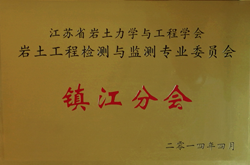 江苏省岩土力学与工程学会
岩土工程检测与监测专业委员会
镇江分会
二零一四年四月